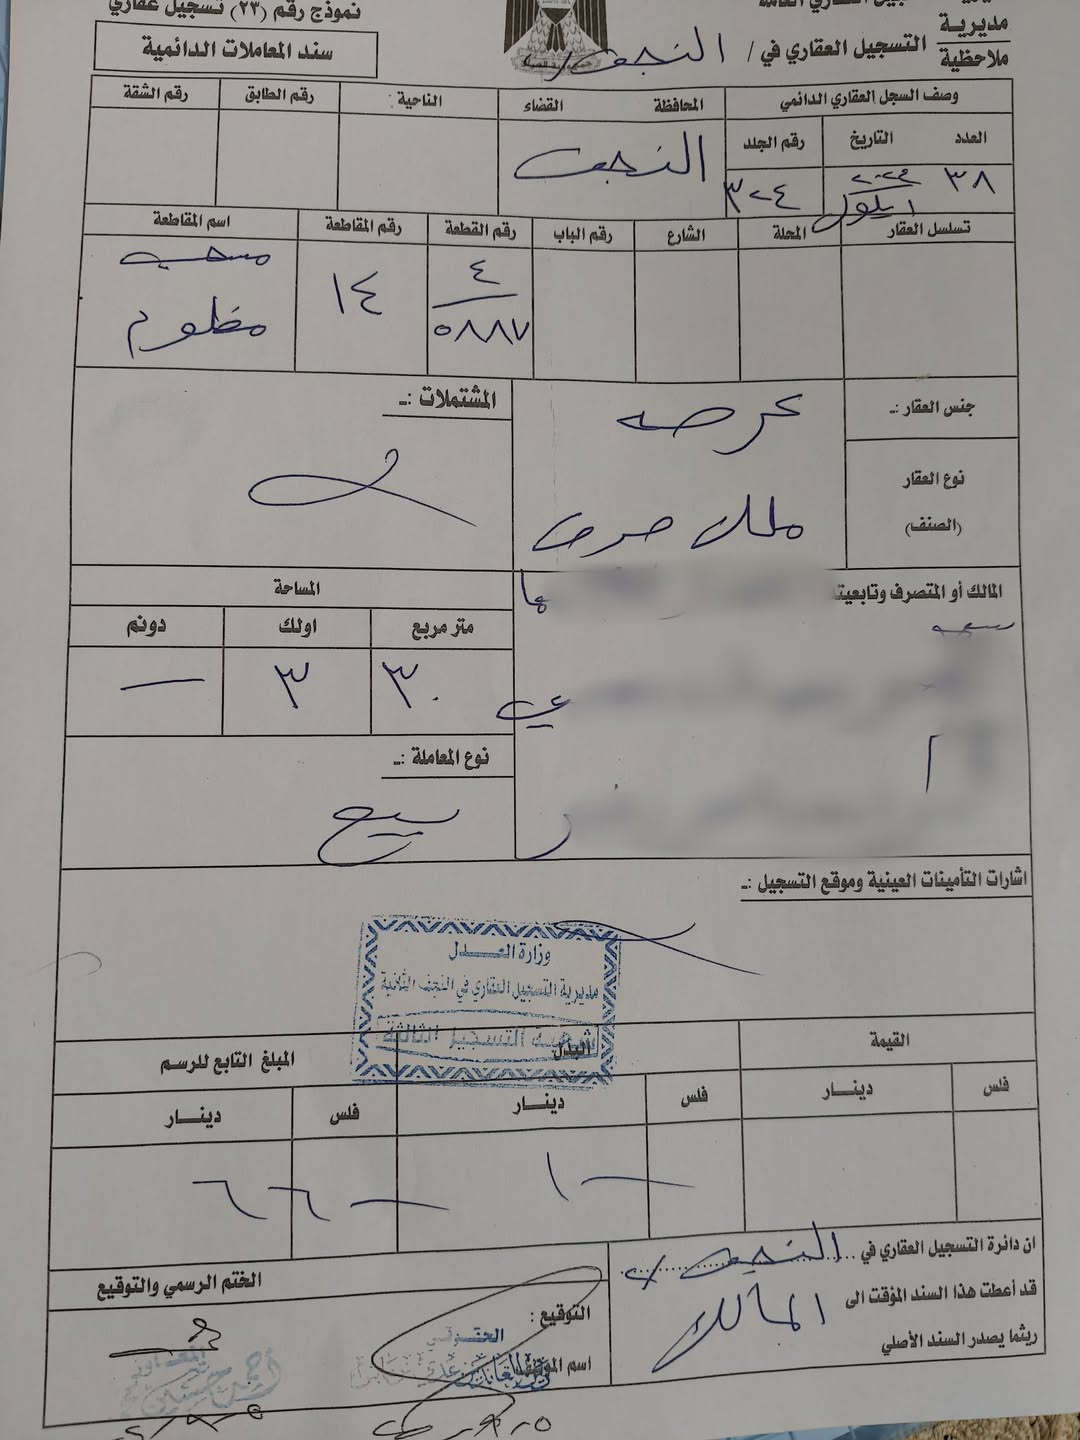 نموذج رقم (٢٣) تسجيل عقاري
سند المعاملات الدائمية
مديرية
ملاحظية
التسجيل العقاري في / النجف
وصف السجل العقاري الدائمي
المحافظة
القضاء
الناحية :
رقم الطابق
رقم الشقة
العدد
التاريخ
رقم الجلد
النجف
٣٨
ايلول
٣٢٤
تسلسل العقار
المحلة
الشارع
رقم الباب
رقم القطعة
رقم المقاطعة
اسم المقاطعة
٤
٥٨٨٧
١٤
مظلوم
جنس العقار :ـ
عرصه
المشتملات :ـ
نوع العقار
(الصنف)
ملك صرف
المالك أو المتصرف وتابعيته
المساحة
متر مربع
اولك
دونم
٣٠
٣
نوع المعاملة :ـ
بيع
اشارات التأمينات العينية وموقع التسجيل :ـ
وزارة العـدل
مديرية التسجيل العقاري في النجف الثانية
شعبة التسجيل الثالثة
القيمة
البدل
المبلغ التابع للرسم
فلس
دينـار
فلس
دينـار
فلس
دينـار
ان دائرة التسجيل العقاري في النجف
قد أعطت هذا السند المؤقت الى المالك
ريثما يصدر السند الأصلي
الختم الرسمي والتوقيع
التوقيع :
الحقوقي
اسم الموظف
المعاون
أحمد حسين